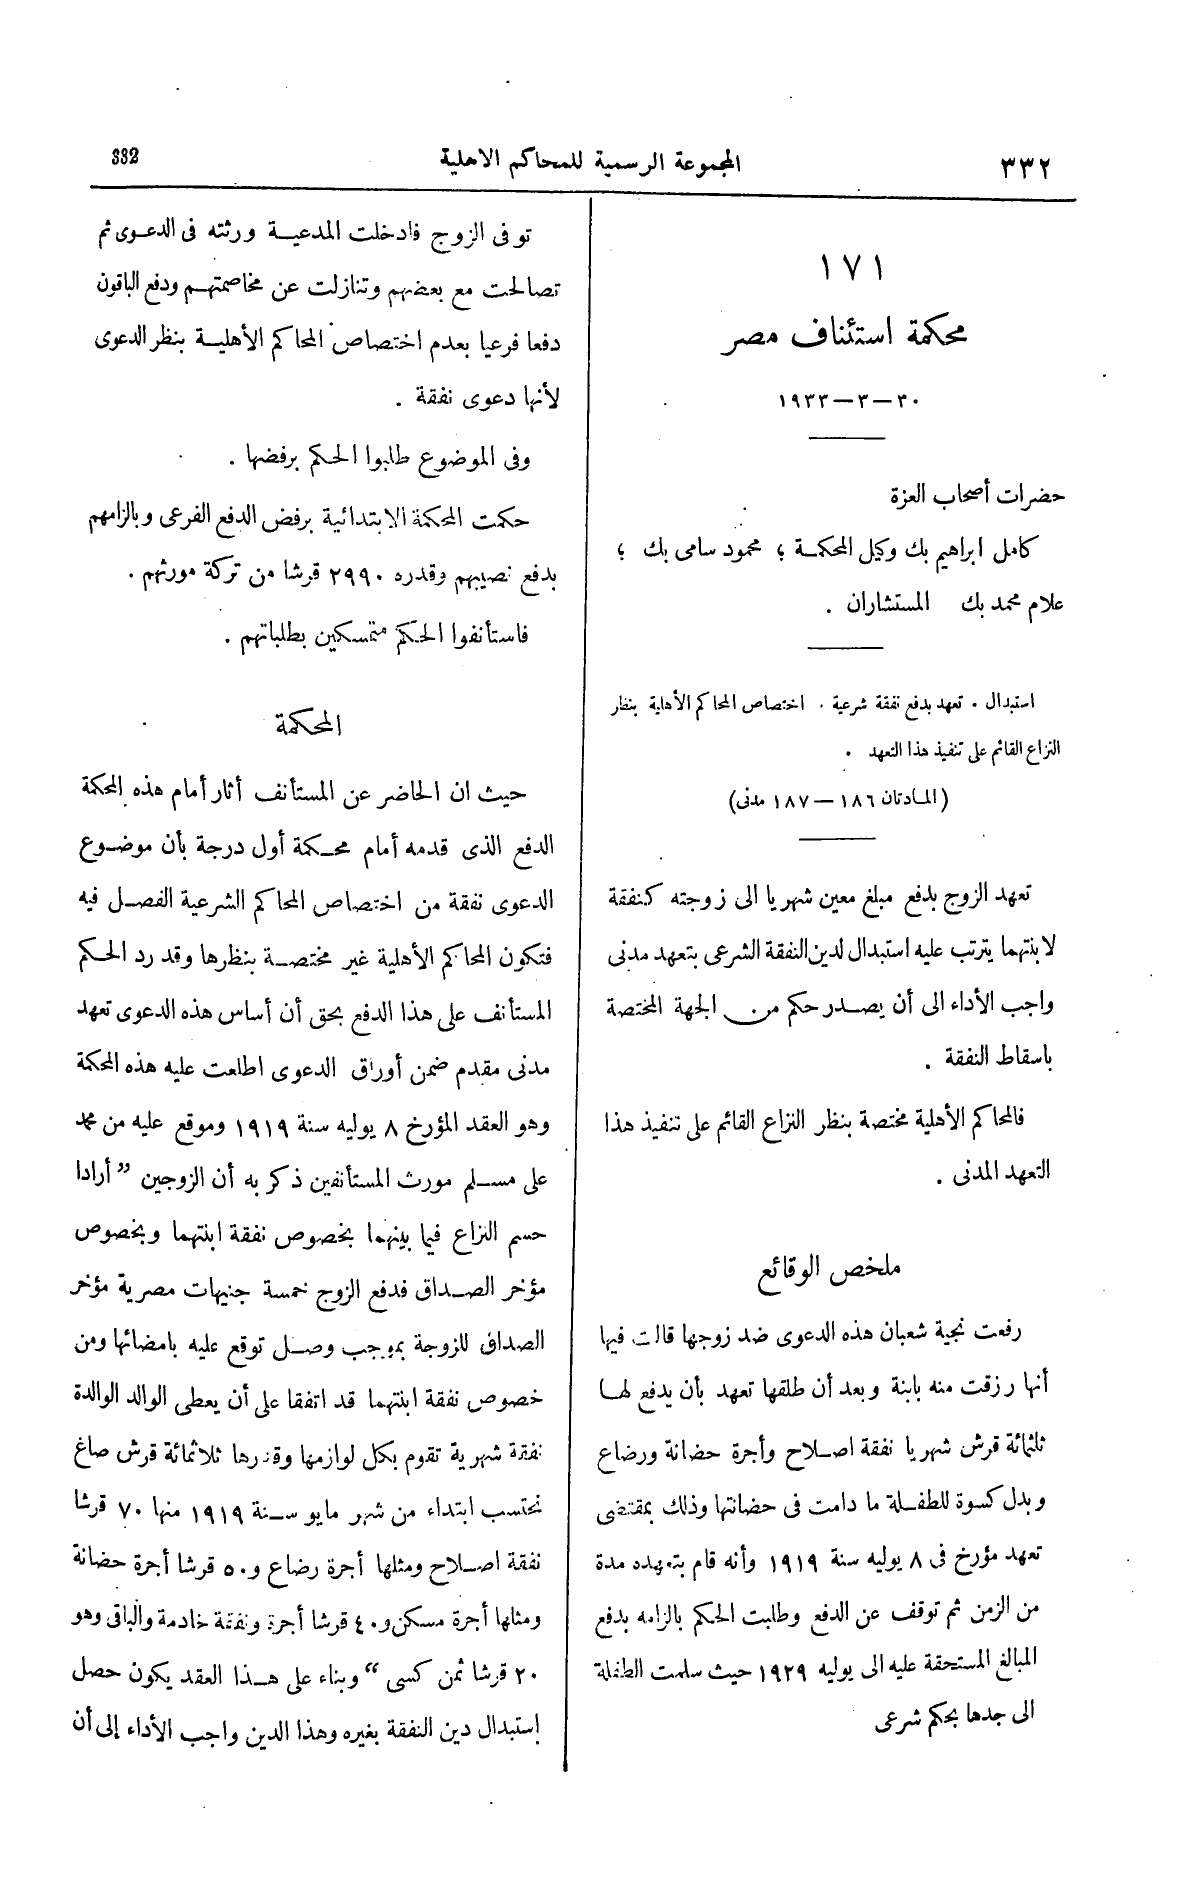 ٣٣٢
المجموعة الرسمية للمحاكم الاهلية
332
١٧١
محكمة استئناف مصر
٣٠—٣—١٩٣٣
حضرات أصحاب العزة
كامل ابراهيم بك وكيل المحكمة ؛ محمود سامى بك ؛
علام محمد بك المستشاران .
استبدال . تعهد بدفع نفقة شرعية . اختصاص المحاكم الأهلية بنظر
النزاع القائم على تنفيذ هذا التعهد .
(المادتان ١٨٦ — ١٨٧ مدنى)
تعهد الزوج بدفع مبلغ معين شهريا الى زوجته كنفقة
لابنتهما يترتب عليه استبدال لدين النفقة الشرعى بتعهد مدنى
واجب الأداء الى أن يصدر حكم من الجهة المختصة
باسقاط النفقة .
فالمحاكم الأهلية مختصة بنظر النزاع القائم على تنفيذ هذا
التعهد المدنى .
ملخص الوقائع
رفعت نجية شعبان هذه الدعوى ضد زوجها قالت فيها
أنها رزقت منه بابنة وبعد أن طلقها تعهد بأن يدفع لها
ثلثمائة قرش شهريا نفقة اصلاح وأجرة حضانة ورضاع
وبدل كسوة للطفلة ما دامت فى حضانتها وذلك بمقتضى
تعهد مؤرخ فى ٨ يوليه سنة ١٩١٩ وأنه قام بتعهده مدة
من الزمن ثم توقف عن الدفع وطلبت الحكم بالزامه بدفع
المبالغ المستحقة عليه الى يوليه ١٩٢٩ حيث سلمت الطفلة
الى جدها بحكم شرعى
توفى الزوج فادخلت المدعية ورثته فى الدعوى ثم
تصالحت مع بعضهم وتنازلت عن مخاصمتهم ودفع الباقون
دفعا فرعيا بعدم اختصاص المحاكم الأهلية بنظر الدعوى
لأنها دعوى نفقة .
وفى الموضوع طلبوا الحكم برفضها .
حكمت المحكمة الابتدائية برفض الدفع الفرعى وبالزامهم
بدفع نصيبهم وقدره ٢٩٩٠ قرشا من تركة مورثهم .
فاستأنفوا الحكم متمسكين بطلباتهم .
المحكمة
حيث ان الحاضر عن المستأنف أثار أمام هذه المحكمة
الدفع الذى قدمه أمام محكمة أول درجة بأن موضوع
الدعوى نفقة من اختصاص المحاكم الشرعية الفصل فيه
فتكون المحاكم الأهلية غير مختصة بنظرها وقد رد الحكم
المستأنف على هذا الدفع بحق أن أساس هذه الدعوى تعهد
مدنى مقدم ضمن أوراق الدعوى اطلعت عليه هذه المحكمة
وهو العقد المؤرخ ٨ يوليه سنة ١٩١٩ وموقع عليه من محمد
على مسلم مورث المستأنفين ذكر به أن الزوجين ” أرادا
حسم النزاع فيما بينهما بخصوص نفقة ابنتهما وبخصوص
مؤخر الصداق فدفع الزوج خمسة جنيهات مصرية مؤخر
الصداق للزوجة بموجب وصل توقع عليه بامضائها ومن
خصوص نفقة ابنتهما قد اتفقا على أن يعطى الوالد الوالدة
نفقة شهرية تقوم بكل لوازمها وقدرها ثلاثمائة قرش صاغ
تحتسب ابتداء من شهر مايو سنة ١٩١٩ منها ٧٠ قرشا
نفقة اصلاح ومثلها أجرة رضاع و٥٠ قرشا أجرة حضانة
ومثلها أجرة مسكن و٤٠ قرشا أجرة ونفقة خادمة والباقى وهو
٢٠ قرشا ثمن كسى “ وبناء على هذا العقد يكون حصل
إستبدال دين النفقة بغيره وهذا الدين واجب الأداء إلى أن